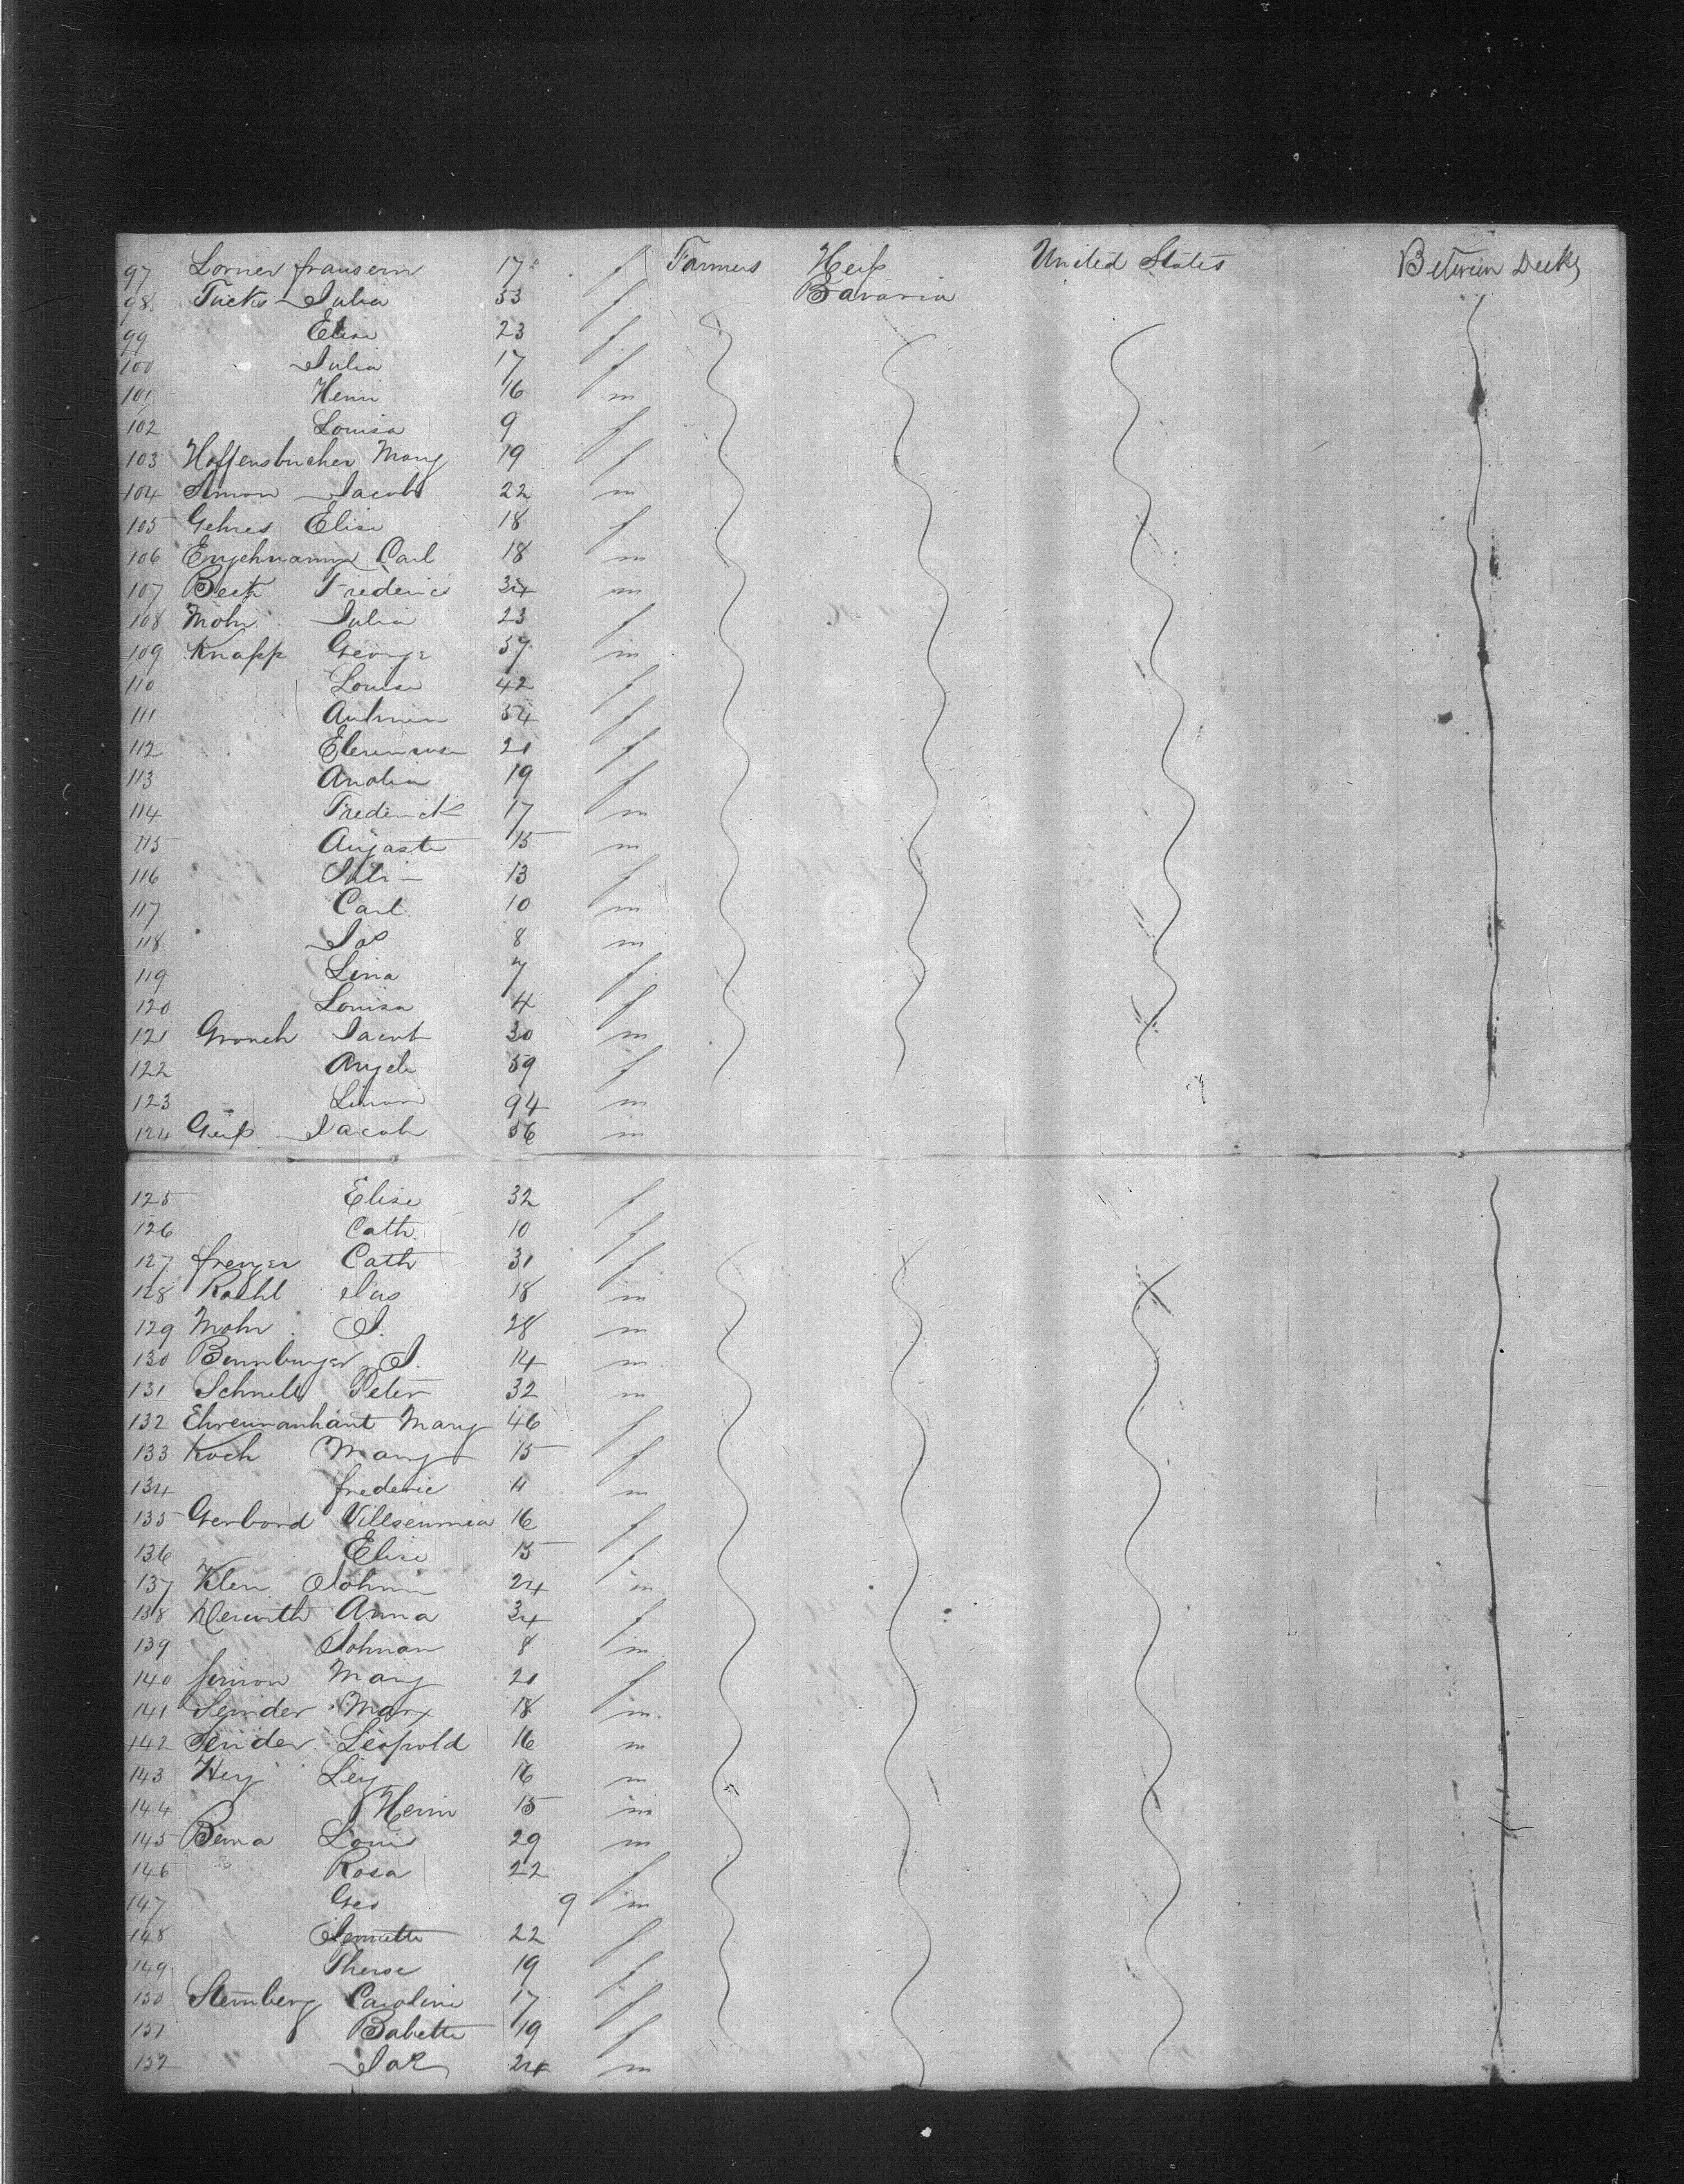 97 Lorner fransern 17 f Farmers Heiß United States Between Decks
98. Fucks Julia 33 f Bavaria
99 Elise 23 f
100 Julia 17 f
101 Henri 16 m
102 Louisa 9 f
103 Hoffensbucher Mary 19 f
104 Simon Jacob 22 m
105 Gehres Elise 18 f
106 Carl 18 m
107 Beck Frederic 34 m
108 Mohr Julia 23 f
109 Knapp George 37 m
110 Louise 42 f
111 34 f
112 21 f
113 19 f
114 Frederick 17 m
115 Auguste 15 m
116 13 f
117 Carl 10 m
118 Jos 8 m
119 Lina 7 f
120 Louisa 4 f
121 Gronch Jacob 30 m
122 Angele 59 f
123 Simon 94 m
124 Geiß Jacob 56 m
125 Elise 32 f
126 Cath. 10 f
127 frenger Cath 31 f
128 Roehl 18 m
129 Mohr J. 28 m
130 J. 14 m
131 Schnell Peter 32 m
132 Ehrenmanhant Mary 46 f
133 Koch Mary 15 f
134 frederic 11 m
135 Gerbord 16 f
136 Elise 15 f
137 Klen 24 m
138 Anna 34 f
139 Johnan 8 m
140 Simon Mary 21 f
141 Sender Marx 18 m
142 Sender Leopold 16 m
143 Hey Ley 16 m
144 Henri 15 m
145 Bema Louis 29 m
146 Rosa 22 f
147 Geo 9 m
148 Jennette 22 f
149 Therse 19 f
150 Sternberg Caroline 17 f
151 Babette 19 f
152 24 m